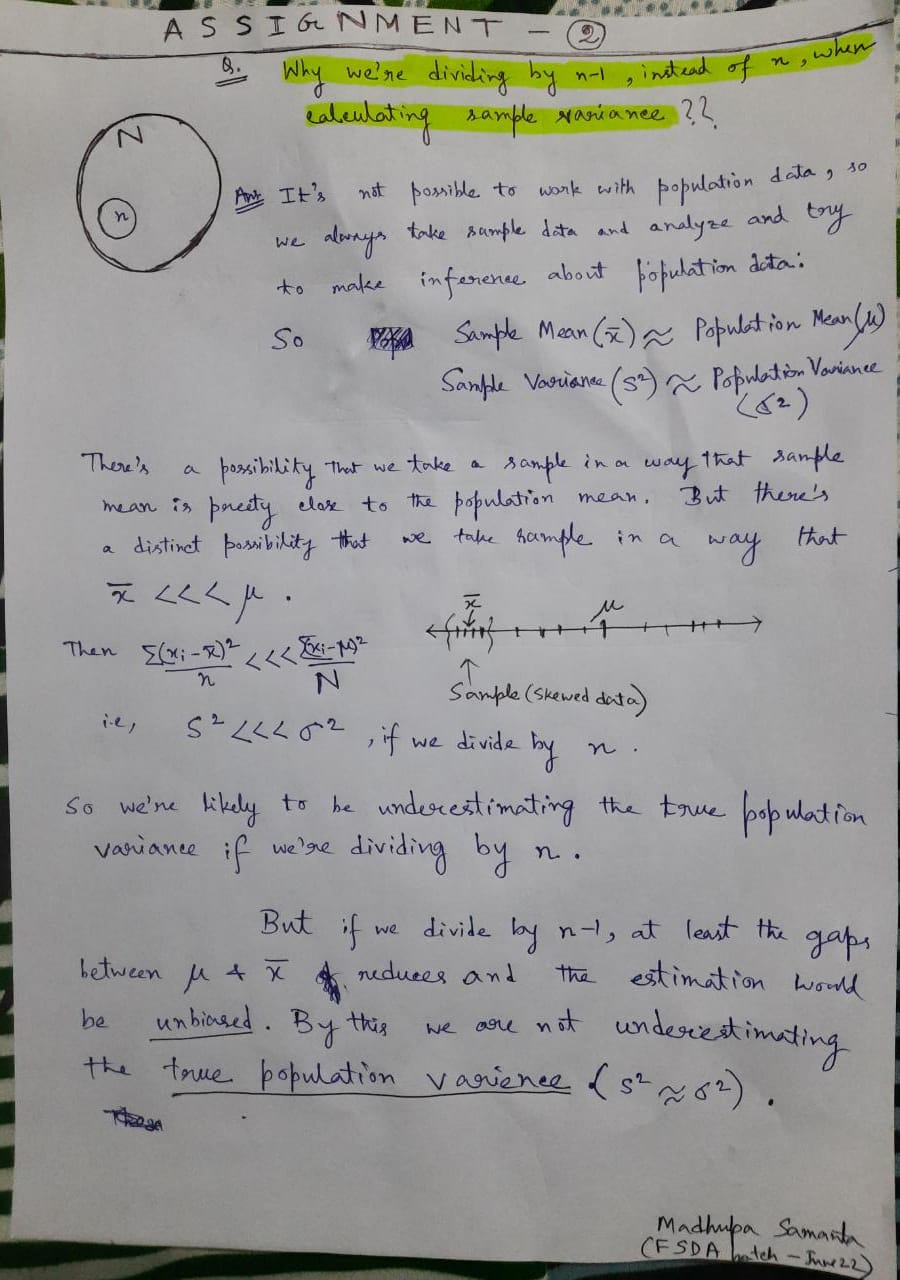 ASSIGNMENT - ②
Q. Why we're dividing by n-1, instead of n, when
calculating sample variance ??
N
n
Ans It's not possible to work with population data, so
we always take sample data and analyze and try
to make inference about population data:
So Sample Mean (x̄) ≈ Population Mean (μ)
Sample Variance (S²) ≈ Population Variance
(σ²)
There's a possibility that we take a sample in a way that sample
mean is preety close to the population mean. But there's
a distinct possibility that we take sample in a way that
x̄ <<< μ.
x̄ μ
Then Σ(xi-x̄)²/n <<< Σ(xi-μ)²/N
Sample (skewed data)
i.e, S² <<< σ², if we divide by n.
So we're likely to be underestimating the true population
variance if we're dividing by n.
But if we divide by n-1, at least the gaps
between μ & x̄ reduces and the estimation would
be unbiased. By this we are not underestimating
the true population varience (S² ≈ σ²).
Madhupa Samanta
(FSDA batch - June 22)